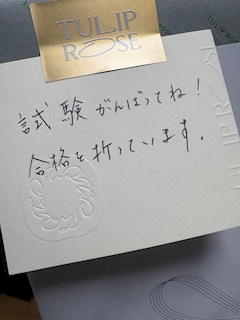 TULIP
ROSE
試験がんばってね！
合格を折っています。
TULIP ROSE